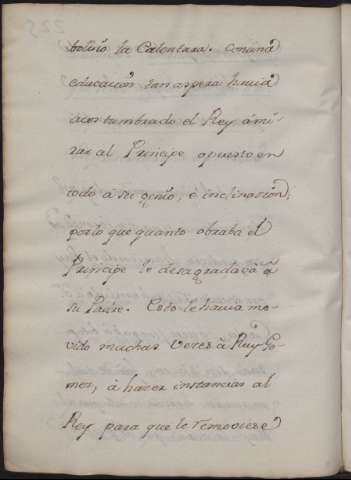 bolvió la Calentura. Con una
educacion tan aspera havia
acostumbrado el Rey ámi-
rar al Principe opuesto en
todo á su genio, é inclinasion;
porlo que quanto obraba el
Principe le desagradava á
su Padre. Esto le havia mo-
vido muchas veces à Ruy Go-
mez, à hacer instancias al
Rey para que le removiese